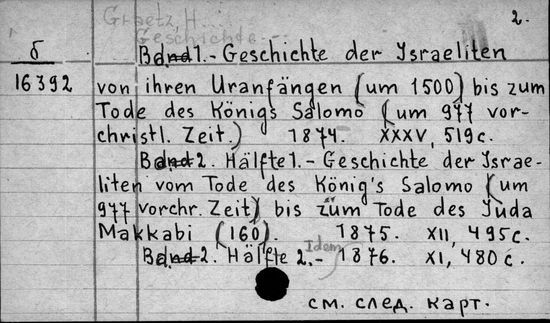 Graetz, H.
2.
Geschichte...
б
16392
Band 1. - Geschichte der Israeliten
von ihren Uranfängen (um 1500) bis zum
Tode des Königs Salomo (um 977 vor-
christl. Zeit.) 1874. XXXV, 519 с.
Band 2. Hälfte 1. - Geschichte der Israe-
liten vom Tode des König's Salomo (um
977 vorchr. Zeit) bis zum Tode des Juda
Makkabi (160). 1875. XII, 495 с.
Idem
Band 2. Hälfte 2. - 1876. XI, 480 с.
см. след. карт.